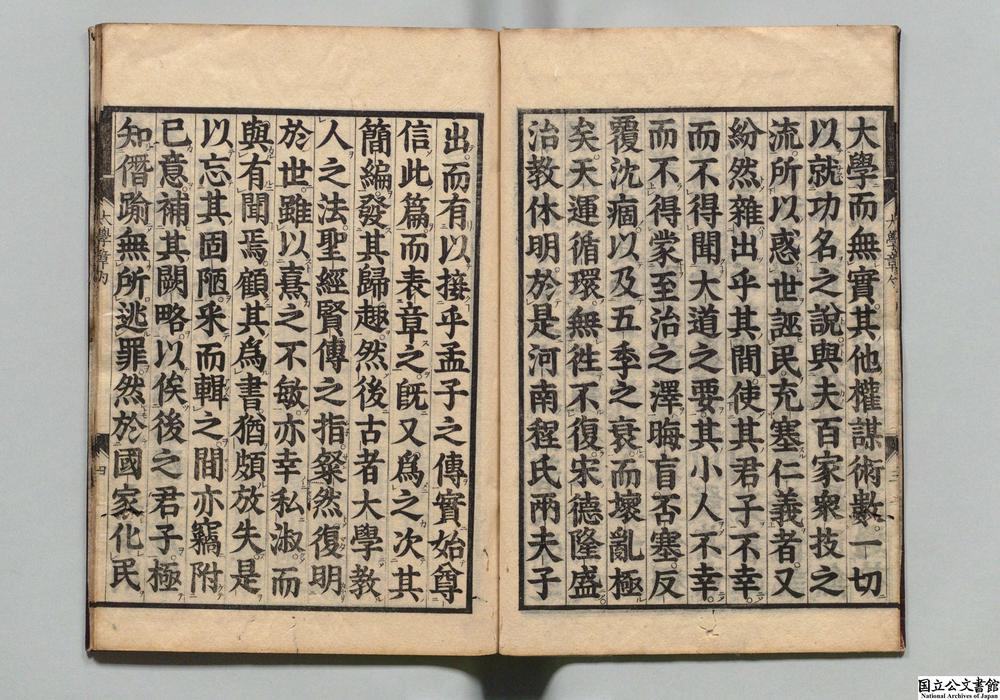 大學而無實其他權謀術數一切
以就功名之說與夫百家衆技之
流所以惑世誣民充塞仁義者又
紛然雜出乎其間使其君子不幸
而不得聞大道之要其小人不幸
而不得蒙至治之澤晦盲否塞反
覆沈痼以及五季之衰而壞亂極
矣天運循環無徃不復宋德隆盛
治教休明於是河南程氏兩夫子
出而有以接乎孟子之傳實始尊
信此篇而表章之旣又爲之次其
簡編發其歸趣然後古者大學教
人之法聖經賢傳之指粲然復明
於世雖以熹之不敏亦幸私淑而
與有聞焉顧其爲書猶頗放失是
以忘其固陋釆而輯之間亦竊附
己意補其闕略以俟後之君子極
知僭踰無所逃罪然於國家化民
大學章句
三
大學章句
四
国立公文書館
National Archives of Japan